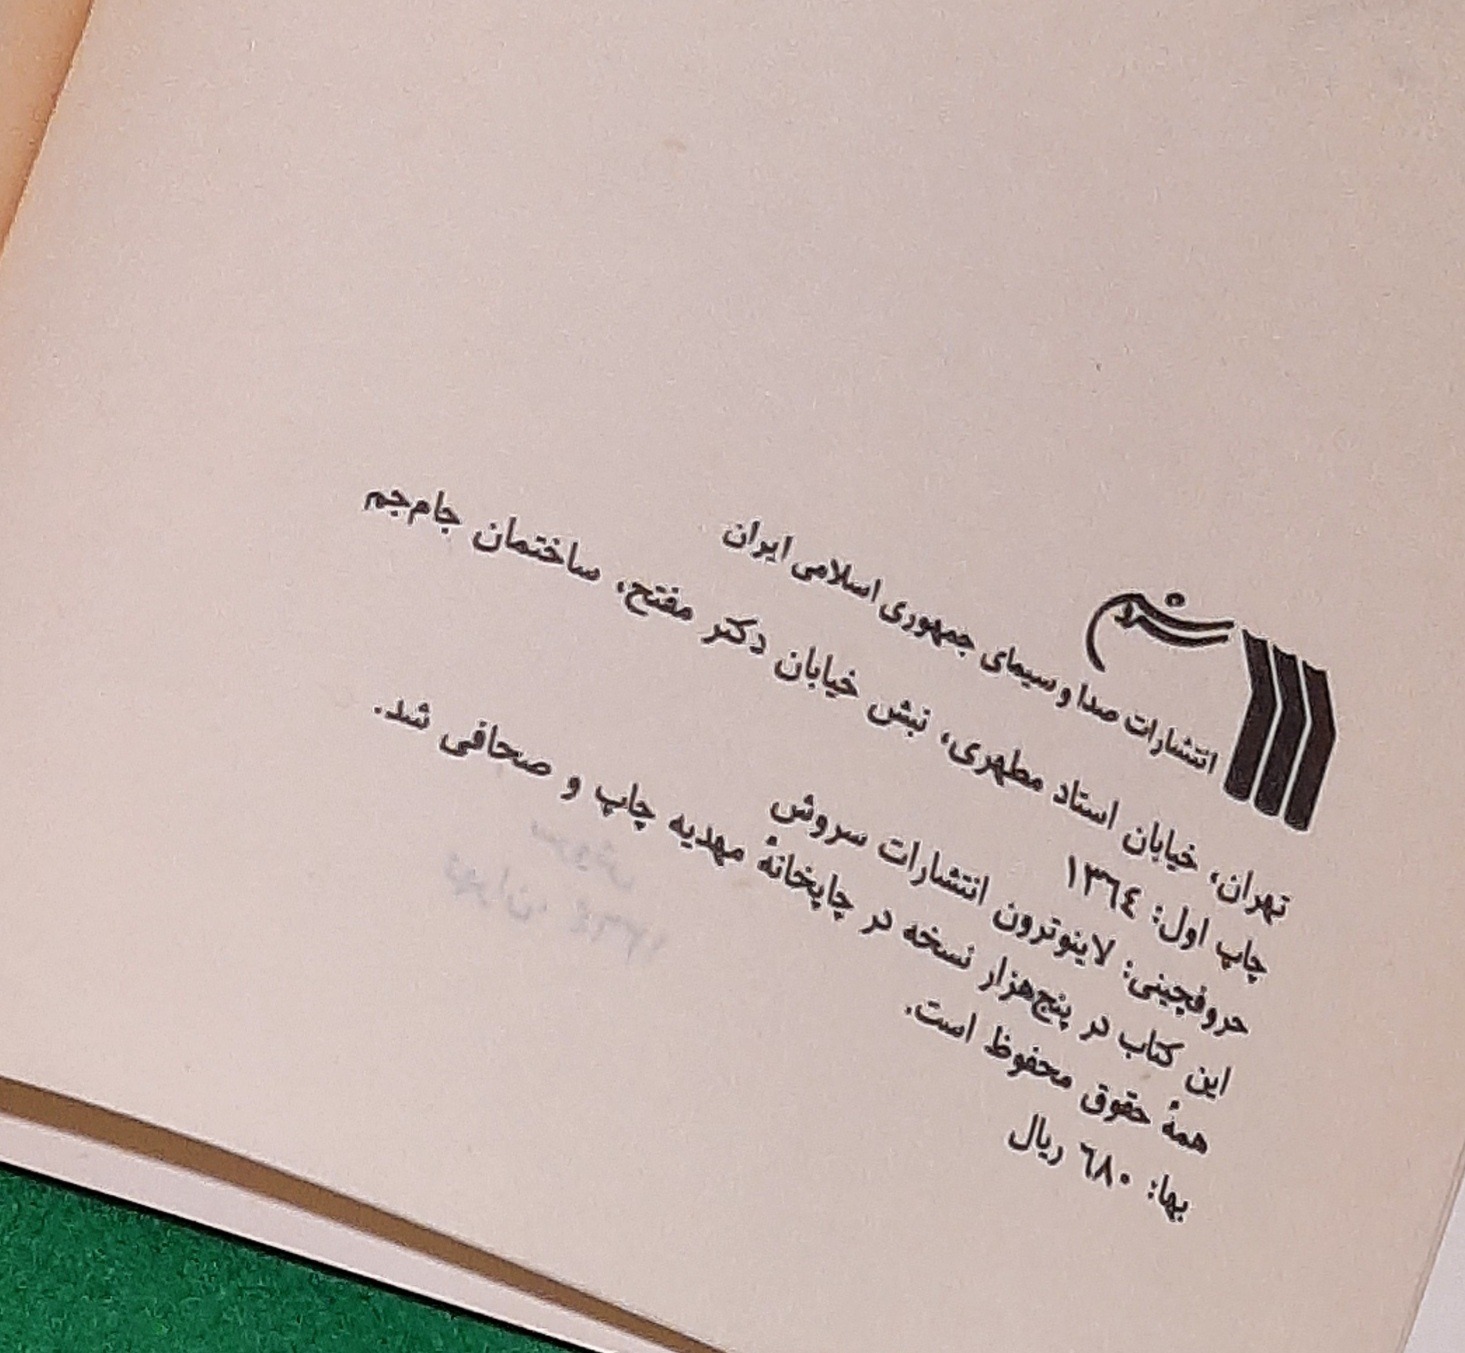 سروش
انتشارات صدا و سیمای جمهوری اسلامی ایران
تهران، خیابان استاد مطهری، نبش خیابان دکتر مفتح، ساختمان جام‌جم
چاپ اول: ۱۳٦٤
حروفچینی: لاینوترون انتشارات سروش
این کتاب در پنج‌هزار نسخه در چاپخانهٔ مهدیه چاپ و صحافی شد.
همهٔ حقوق محفوظ است.
بها: ٦٨٠ ریال
سروش
تهران، ۱۳٦٤